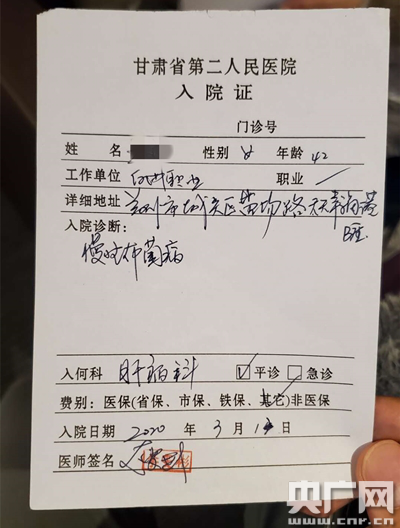 甘肃省第二人民医院
入院证
门诊号
姓名 性别 女 年龄 42
工作单位 职业
详细地址 兰州市城关区
入院诊断：
慢性布菌病
入何科 肝病科 ☑平诊 ☐急诊
费别：医保(省保、市保、铁保、其它)非医保
入院日期 2020 年 3 月 日
医师签名
央广网
www.cnr.cn